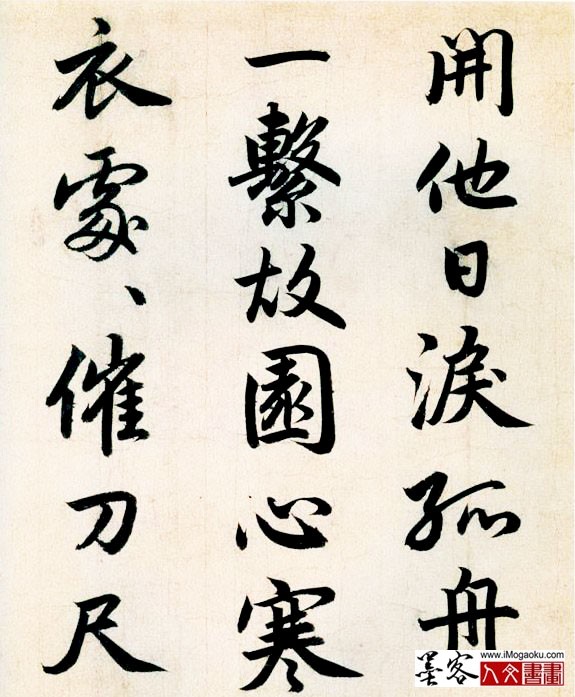 開他日淚孤舟
一繫故園心寒
衣處、催刀尺
墨客
www.iMogaoku.com
人文書畫